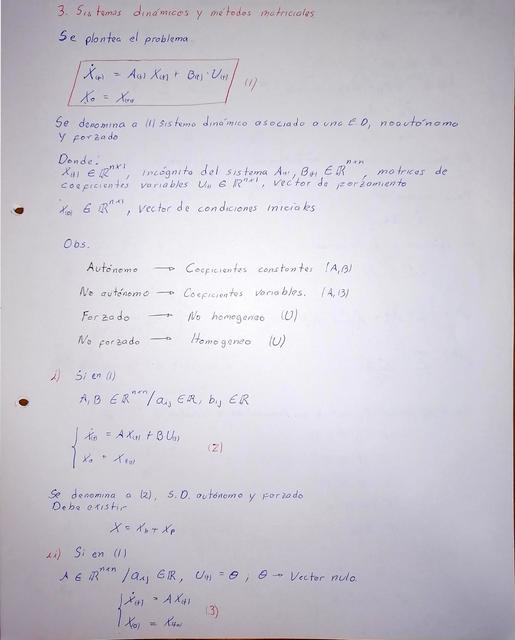 3. Sistemas dinámicos y métodos matriciales
Se plantea el problema.
Ẋ(t) = A(t) X(t) + B(t)·U(t)
X₀ = X(t₀)
(1)
Se denomina a (1) Sistema dinámico asociado a una E.D, no autónomo
y forzado
Donde:
X(t) ∈ ℝⁿˣ¹, incógnita del sistema A(t), B(t) ∈ ℝⁿˣⁿ, matrices de
coeficientes variables U(t) ∈ ℝⁿˣ¹, vector de forzamiento
X(0) ∈ ℝⁿˣ¹, vector de condiciones iniciales
Obs.
Autónomo → Coeficientes constantes (A,B)
No autónomo → Coeficientes variables. (A,B)
Forzado → No homogeneo (U)
No forzado → Homogeneo (U)
i) Si en (1)
A, B ∈ ℝⁿˣⁿ / aᵢⱼ ∈ ℝ, bᵢⱼ ∈ ℝ
Ẋ(t) = A X(t) + B U(t)
X₀ = X(t₀)
(2)
Se denomina a (2), S.D. autónomo y forzado
Debe existir
X = Xh + Xp
ii) Si en (1)
A ∈ ℝⁿˣⁿ / aᵢⱼ ∈ ℝ, U(t) = θ ; θ → Vector nulo.
Ẋ(t) = A X(t)
X(0) = X(t₀)
(3)